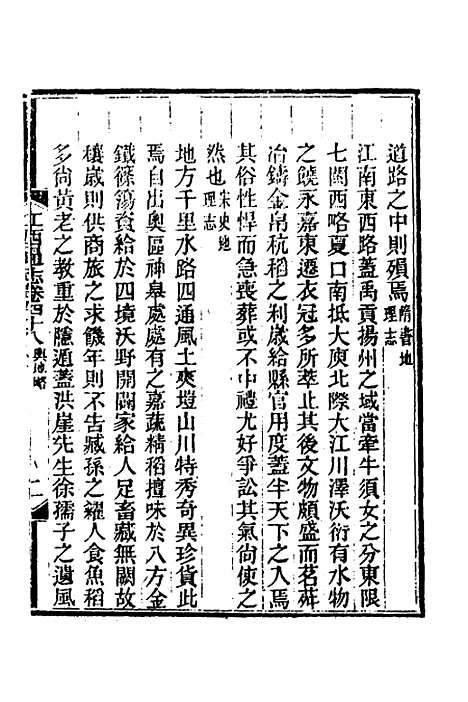 道路之中則殞焉隋書地理志
江南東西路蓋禹貢揚州之域當牽牛須女之分東限
七閩西略夏口南抵大庾北際大江川澤沃衍有水物
之饒永嘉東遷衣冠多所萃止其後文物頗盛而茗荈
冶鑄金帛秔稻之利歲給縣官用度蓋半天下之入焉
其俗性悍而急喪葬或不中禮尤好爭訟其氣尚使之
然也宋史地理志
地方千里水路四通風土爽塏山川特秀奇異珍貨此
焉自出奧區神皋處處有之嘉蔬精稻擅味於八方金
鐵篠簜資給於四境沃野開闢家給人足畜藏無闕故
穰歲則供商旅之求饑年則不告臧孫之糴人食魚稻
多尚黃老之教重於隱遁蓋洪崖先生徐孺子之遺風
江西通志卷四十八輿地略